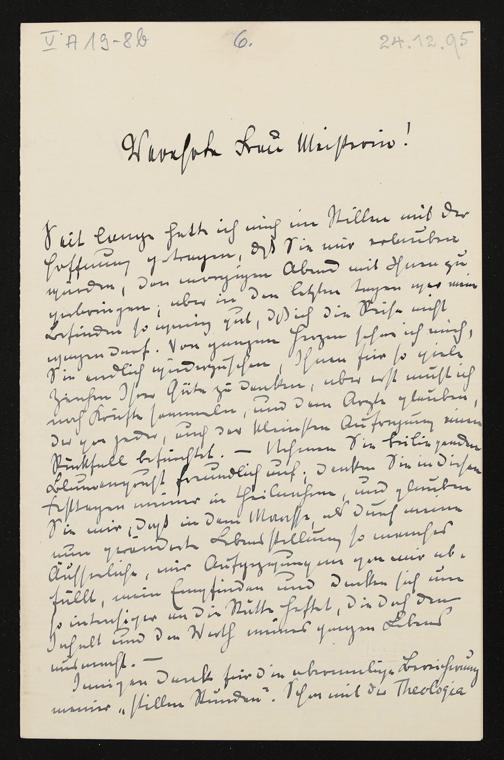 V A 19-8b 6. 24.12.95
Verehrte Frau Meisterin!
Seit lange hatte ich mich im Stillen mit der
Hoffnung getragen, daß Sie mir erlauben
würden, den morgigen Abend mit Ihnen zu
verbringen; aber in den letzten Tagen war mein
Befinden so wenig gut, daß ich die Reise nicht
wagen darf. Von ganzem Herzen sehne ich mich,
Sie endlich wiederzusehen, Ihnen für so viele
Zeichen Ihrer Güte zu danken, aber erst muß ich
noch Kräfte sammeln, und dem Arzte glauben,
der von jeder, auch der kleinsten Aufregung einen
Rückfall befürchtet. – Nehmen Sie beiliegenden
Blumengruß freundlich auf, denken Sie in diesen
Festtagen meiner in Theilnahme, und glauben
Sie mir, daß in dem Maaße, als durch meine
nun veränderte Lebensstellung so manches
Äusserliche, wie Aufregungen von mir ab-
fällt, mein Empfinden und Denken sich um
so inniger an die Stätte heftet, die doch den
Inhalt und den Werth meines ganzen Lebens
ausmacht. –
Innigen Dank für die abermalige Bereicherung
meiner „stillen Stunden". Schon mit der Theologia